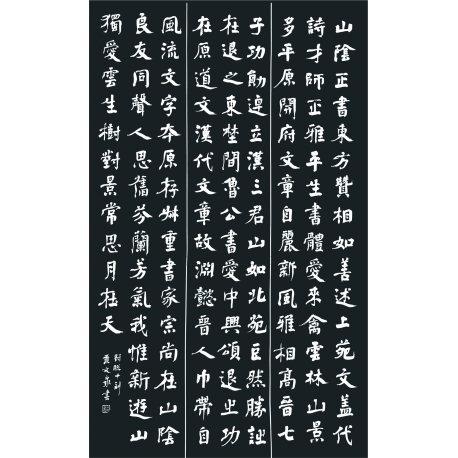 山陰正書東方贊相如善述上苑文蓋代
詩才師正雅平生書體愛來禽雲林山景
多平原開府文章自麗新風雅相高晉七
子功勛立漢三君山如北苑巨然勝
在退之東埜間魯公書愛中興頌退之功
在原道文漢代文章故淵懿晉人巾帶自
風流文字本原存艸重書家宗尚在山陰
良友同聲人思舊芬蘭芳氣我惟新遊山
獨愛雲生樹對景常思月在天